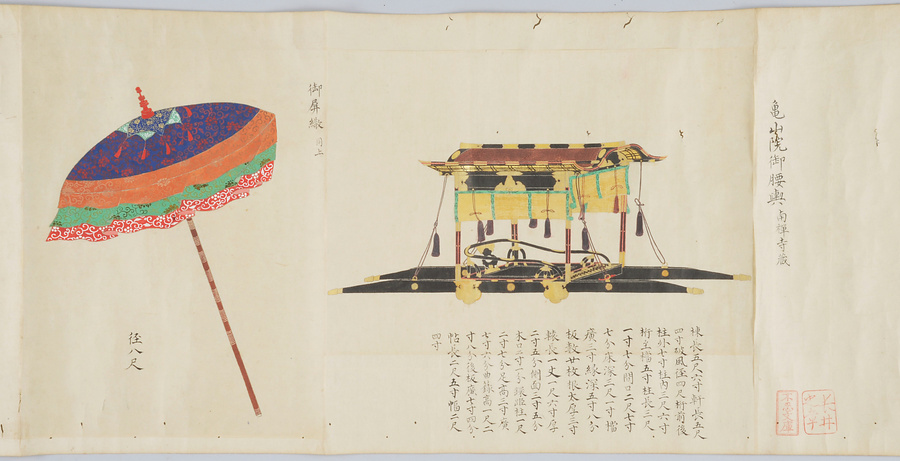 亀山院御腰輿 南禅寺蔵
棟長五尺六寸軒長五尺
四寸破風径四尺桁前後
柱外七寸柱内二尺六寸
桁主檐五寸柱長三尺
一寸七分間口二尺七寸
七分床深三尺一寸檐
廣三寸縁深五寸八分
板敷廿枚根太厚三寸
轅長一丈一尺六寸厚
二寸五分側面二寸五分
木口二寸一分縁短柱
二寸七分足高二寸廣
七寸六分曲録高一尺二
寸八分後板廣七寸四分
帖長二尺五寸幅二尺
四寸
御屏繖 同上
径八尺